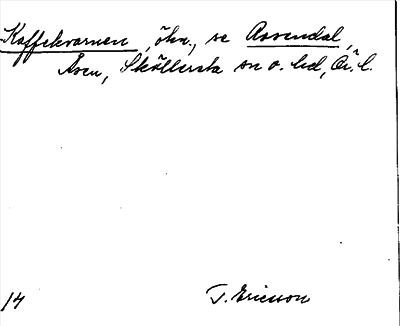 Kaffekvarnen, ökn., se Assendal,
Åsen, Sköllersta sn o. hd, Ör. l.
14 T. Ericsson